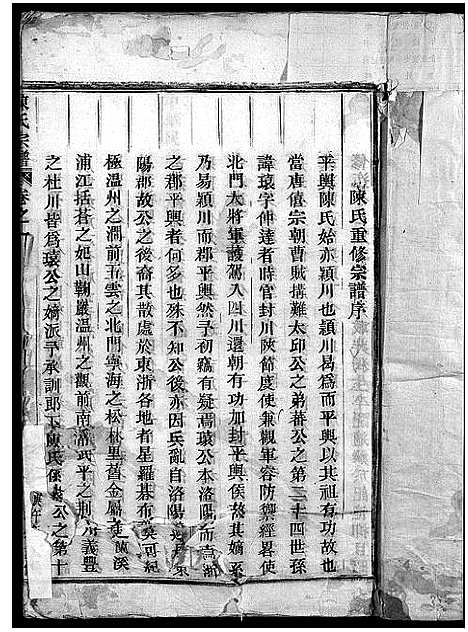 陳氏重修宗譜序
平輿陳氏始亦潁川也潁川曷為而平輿以其祖有功故也
當唐僖宗朝曹賊搆難太邱公之弟蕃公之第三十四世孫
諱瓌字伸達者時官封川陝節度使兼觀軍容防禦經畧使
北門大將軍護駕入四川還朝有功加封平輿侯故其嫡系
乃易潁川而郡平輿然予初竊有疑焉瓌公本洛陽而
之郡平輿者何多也殊不知公後亦因兵亂自洛陽
陽郡故公之後裔其散處於東浙各地者星羅棊布莫可紀
極温州之澗前五雲之北門寧海之松林里舊金屬之東陳溪
浦江括蒼之妃山鞠巖温州之觀前南溪武平之荆州義豐
之杜川皆為瓌公之嫡派予承訓郎 陳氏係 公之第十
陳氏宗譜 卷之一